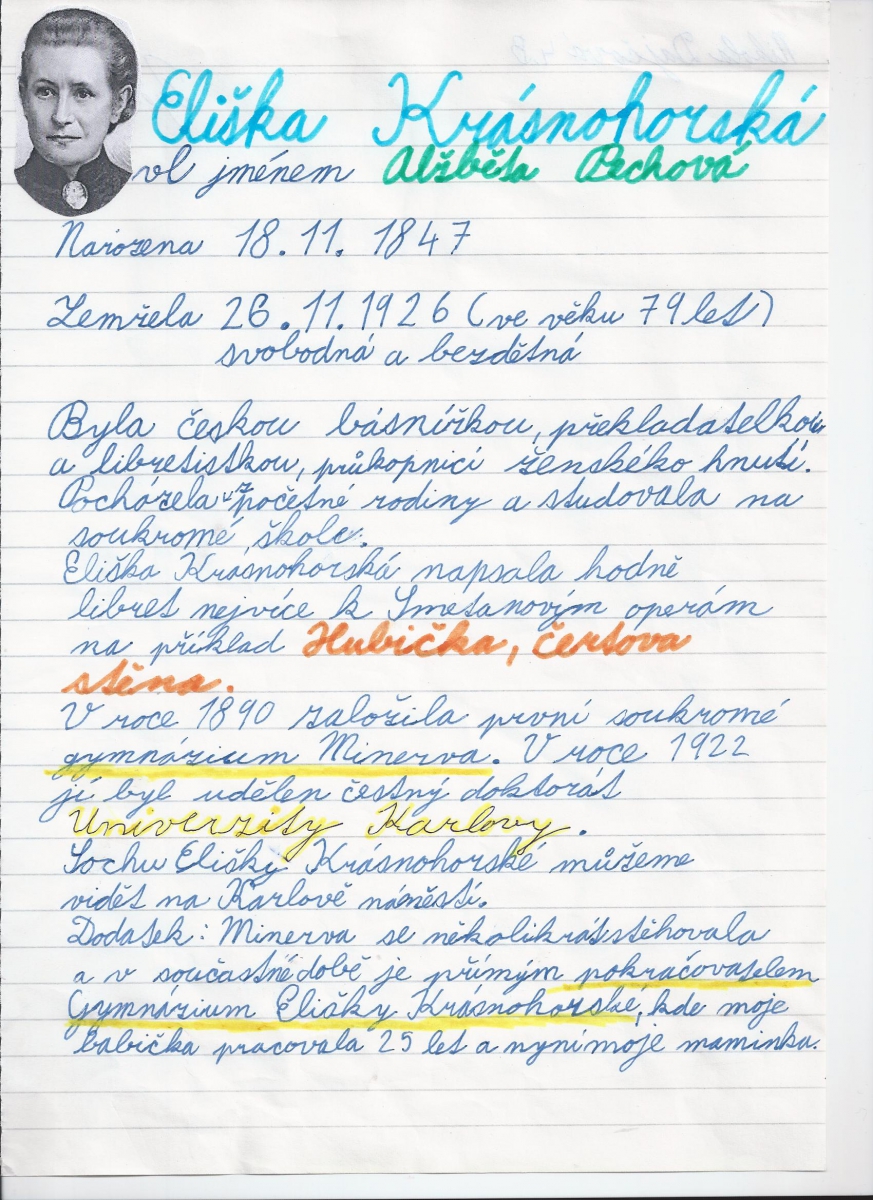 Eliška Krásnohorská
vl jménem Alžběta Pechová
Narozena 18.11. 1847
Zemřela 26.11.1926 (ve věku 79 let)
svobodná a bezdětná
Byla českou básnířkou, překladatelkou
a libretistkou, průkopnicí ženského hnutí.
Pocházela z početné rodiny a studovala na
soukromé škole.
Eliška Krásnohorská napsala hodně
libret nejvíce k Smetanovým operám
na příklad Hubička, čertova
stěna.
V roce 1890 založila první soukromé
gymnázium Minerva. V roce 1922
jí byl udělen čestný doktorát
Univerzity Karlovy.
Sochu Elišky Krásnohorské můžeme
vidět na Karlově náměstí.
Dodatek: Minerva se několikrát stěhovala
a v součastné době je přímým pokračovatelem
Gymnázium Elišky Krásnohorské, kde moje
babička pracovala 25 let a nyní moje maminka.